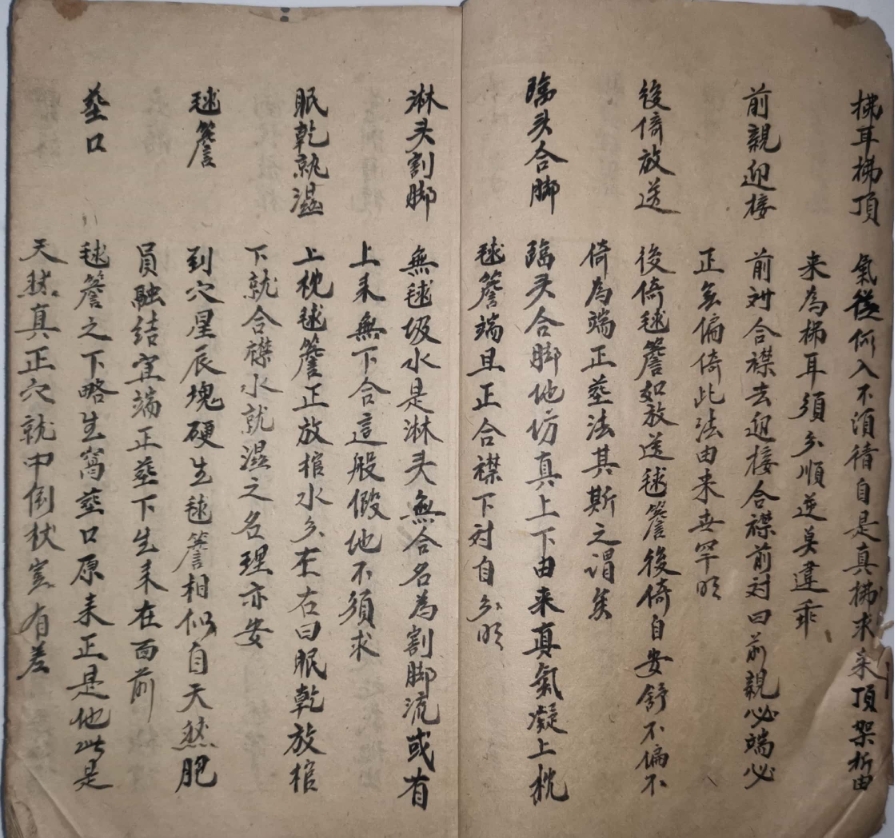 拂耳拂頂　氣從何入不須猜自是真拂求來頂架折由
来為梯耳須分順逆莫違乖
前親迎接　前対合襟去迎接合襟前対曰前親必端必
正無偏倚此法由来世罕明
後倚放送　後倚毬簷如放送毬簷後倚自安舒不偏不
倚為端正塟法其斯之謂矣
臨头合脚　臨头合脚他坊真上下由来真氣凝上枕
毬簷端且正合襟下対自分明
淋头割脚　無毬圾水是淋头無合名為割脚流或有
上来無下合這般假地不須求
眠乾就濕　上枕毬簷正放棺水分左右曰眠乾放棺
下就合襟水就濕之名理亦安
毬簷　到穴星辰塊硬生毬簷相似自天然肥
員融結宜端正塟下生来在面前
塟口　毬簷之下略生窩塟口原来正是他此是
天然真正穴就中倒杖豈有差